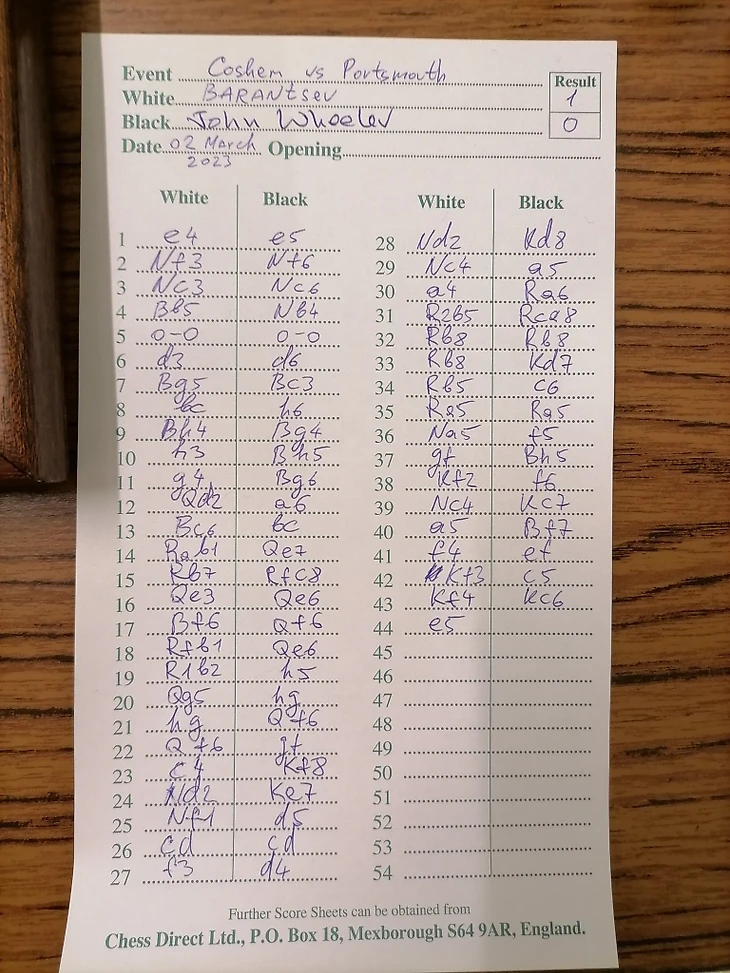 Event Coshem vs Portsmouth
Result
White BARANtsev 1
Black John Wheeler 0
Date 02 March 2023 Opening
White Black White Black
1 e4 e5
2 Nf3 Nf6
3 Nc3 Nc6
4 Bb5 Nb4
5 0-0 0-0
6 d3 d6
7 Bg5 Bc3
8 bc h6
9 Bh4 Bg4
10 h3 Bh5
11 g4 Bg6
12 Qd2 a6
13 Bc6 bc
14 Rab1 Qe7
15 Rb7 Rfc8
16 Qe3 Qe6
17 Bf6 Qf6
18 Rfb1 Qe6
19 R1b2 h5
20 Qg5 hg
21 hg Qf6
22 Qf6 gf
23 c4 Kf8
24 Nd2 Ke7
25 Nf1 d5
26 cd cd
27 f3 d4
28 Nd2 Kd8
29 Nc4 a5
30 a4 Ra6
31 R2b5 Rca8
32 Rb8 Rb8
33 Rb8 Kd7
34 Rb5 c6
35 Ra5 Ra5
36 Na5 f5
37 gf Bh5
38 Kf2 f6
39 Nc4 Kc7
40 a5 Bf7
41 f4 ef
42 Kf3 c5
43 Kf4 Kc6
44 e5
45
46
47
48
49
50
51
52
53
54
Further Score Sheets can be obtained from
Chess Direct Ltd., P.O. Box 18, Mexborough S64 9AR, England.